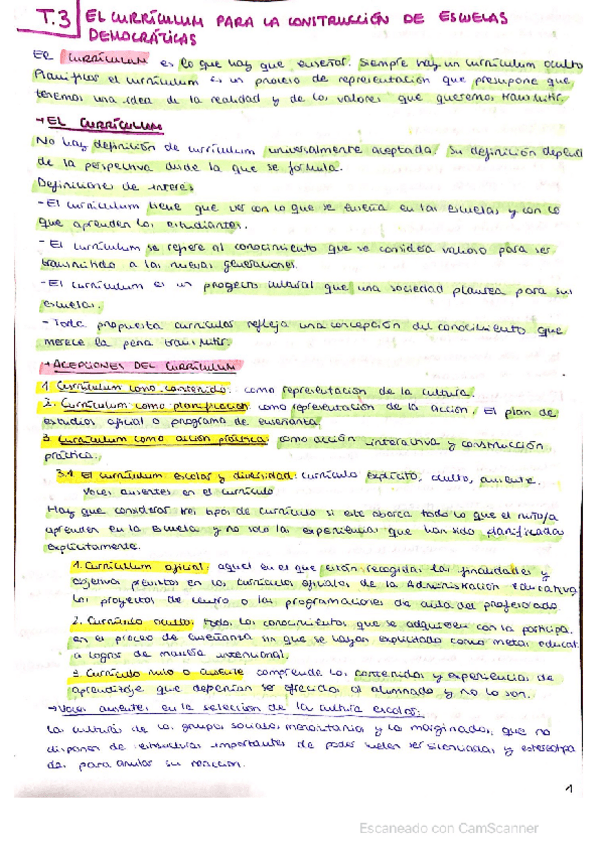 T.3 EL CURRÍCULUM PARA LA CONSTRUCCIÓN DE ESCUELAS
DEMOCRÁTICAS
El currículum es lo que hay que enseñar. Siempre hay un currículum oculto
Planificar el currículum es un proceso de representación que presupone que
tenemos una idea de la realidad y de los valores que queremos transmitir.
→ EL CURRÍCULUM
No hay definición de currículum universalmente aceptada. Su definición depende
de la perspectiva desde la que se formula.
Definiciones de interés
- El currículum tiene que ver con lo que se enseña en las escuelas y con lo
que aprenden los estudiantes.
- El currículum se refiere al conocimiento que se considera valioso para ser
transmitido a las nuevas generaciones.
- El currículum es un proyecto cultural que una sociedad plantea para sus
escuelas.
- Toda propuesta curricular refleja una concepción del conocimiento que
merece la pena transmitir.
→ ACEPCIONES DEL CURRÍCULUM
1. Currículum como contenido: como representación de la cultura.
2. Currículum como planificación: como representación de la acción. El plan de
estudios oficial o programa de enseñanza.
3. Currículum como acción práctica: como acción interactiva y construcción
práctica.
3.1 El currículum escolar y diversidad: currículo explícito, oculto, ausente.
Voces ausentes en el currículo
Hay que considerar tres tipos de currículo si este abarca todo lo que el niño/a
aprende en la escuela y no solo las experiencias que han sido planificadas
explícitamente.
1. Currículum oficial: aquel en el que están recogidas las finalidades y
objetivos previstos en los currículos oficiales de la Administración educativa
los proyectos de centro o las programaciones de aula del profesorado.
2. Currículo oculto: todos los conocimientos que se adquieren con la participa.
en el proceso de enseñanza sin que se hayan explicitado como metas educat.
a lograr de manera intencional.
3. Currículo nulo o ausente comprende los contenidos y experiencias de
aprendizaje que deberían ser ofrecidos al alumnado y no lo son.
→ Voces ausentes en la selección de la cultura escolar:
Las culturas de los grupos sociales minoritarios y/o marginados, que no
disponen de estructuras importantes de poder suelen ser silenciadas y estereotipa
das para anular su reacción.
1
Escaneado con CamScanner